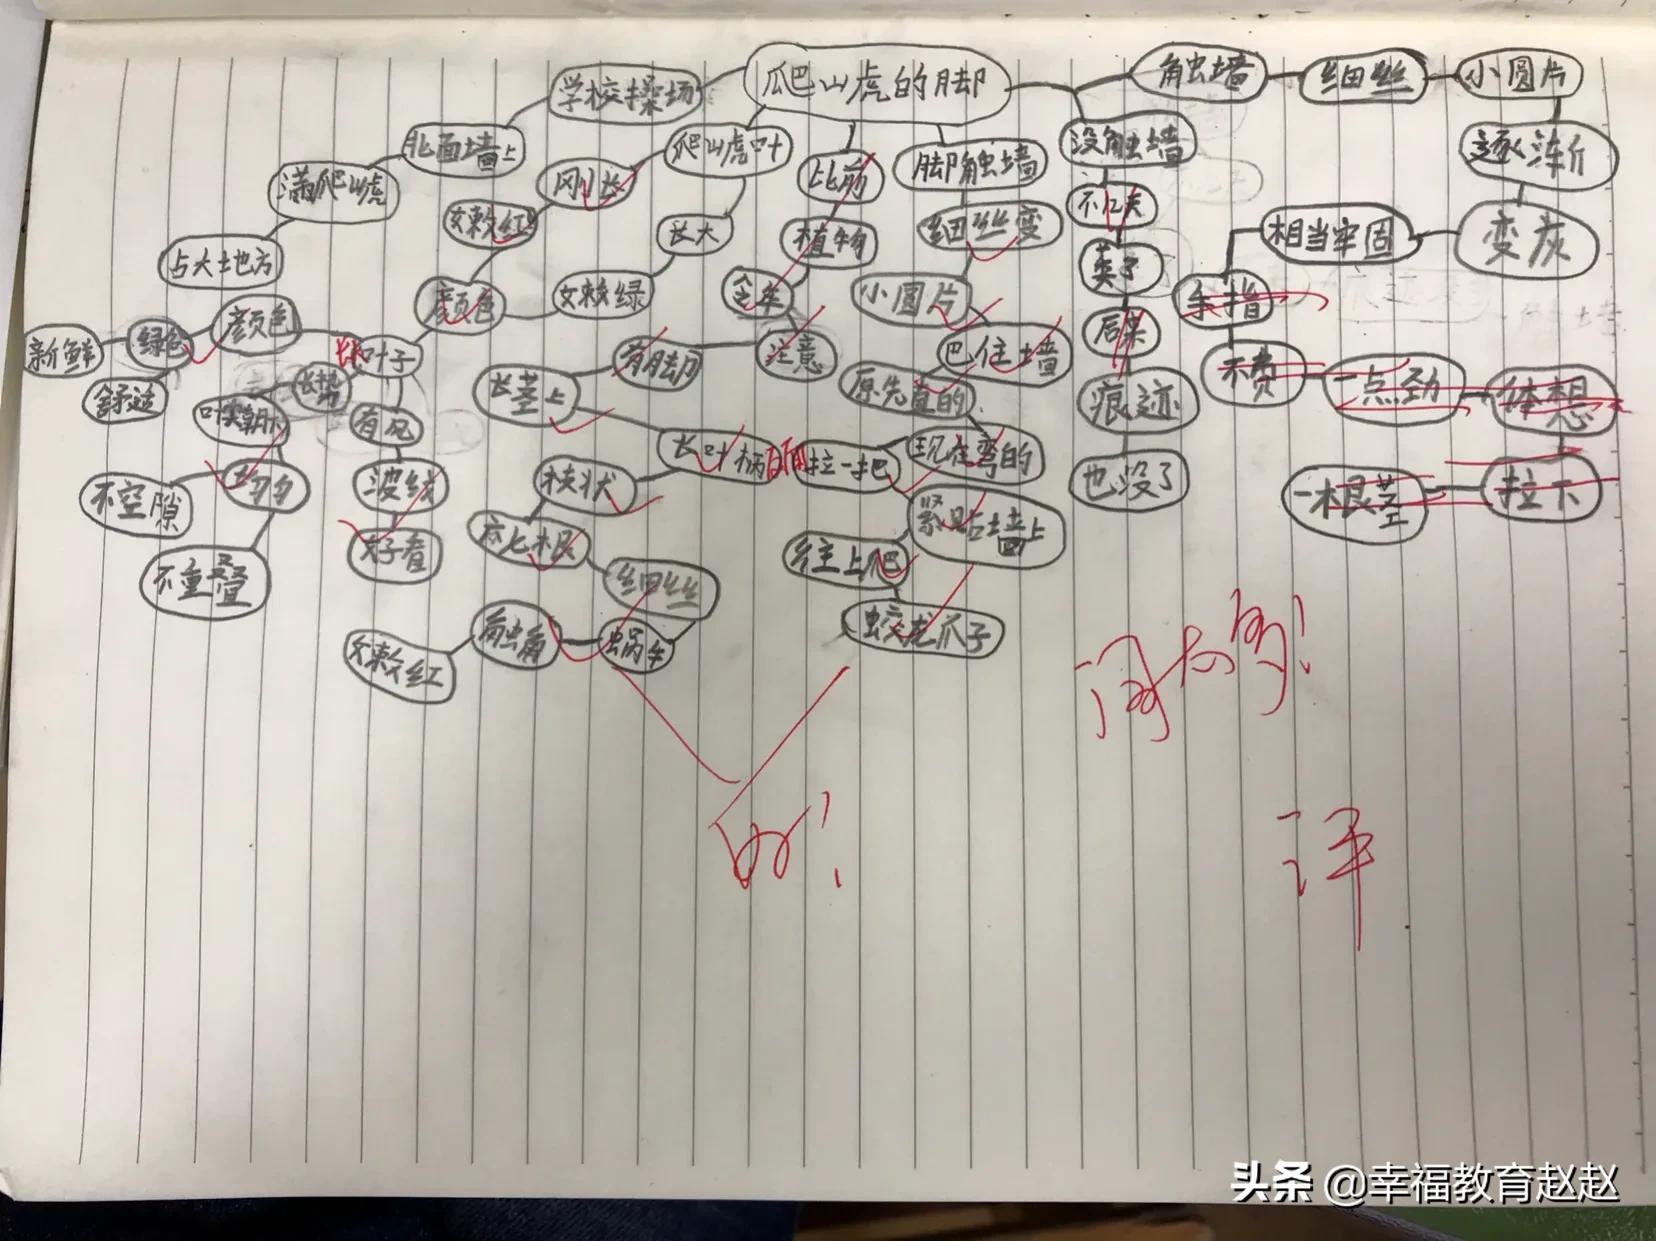 爬山虎的脚
学校操场
北面墙上
满爬山虎
占大土地方
爬山虎叶
刚长
嫩红
长大
嫩绿
颜色
叶子
颜色
绿色
新鲜
舒适
长势
叶尖朝下
均匀
不空隙
不重叠
有风
波纹
好看
比前
植物
今年
注意
有脚
长茎上
长叶柄
枝状
六七根
细丝
蜗牛
触角
嫩红
脚触墙
细丝变
小圆片
巴住墙
原先直的
现在弯的
拉一把
紧贴墙上
往上爬
蛟龙爪子
没触墙
不几天
萎了
后果
痕迹
也没了
触墙
细丝
小圆片
逐渐
变灰
相当牢固
手指
不费
一点劲
休想
拉下
一根茎
词太多!
评
头条 @幸福教育赵赵